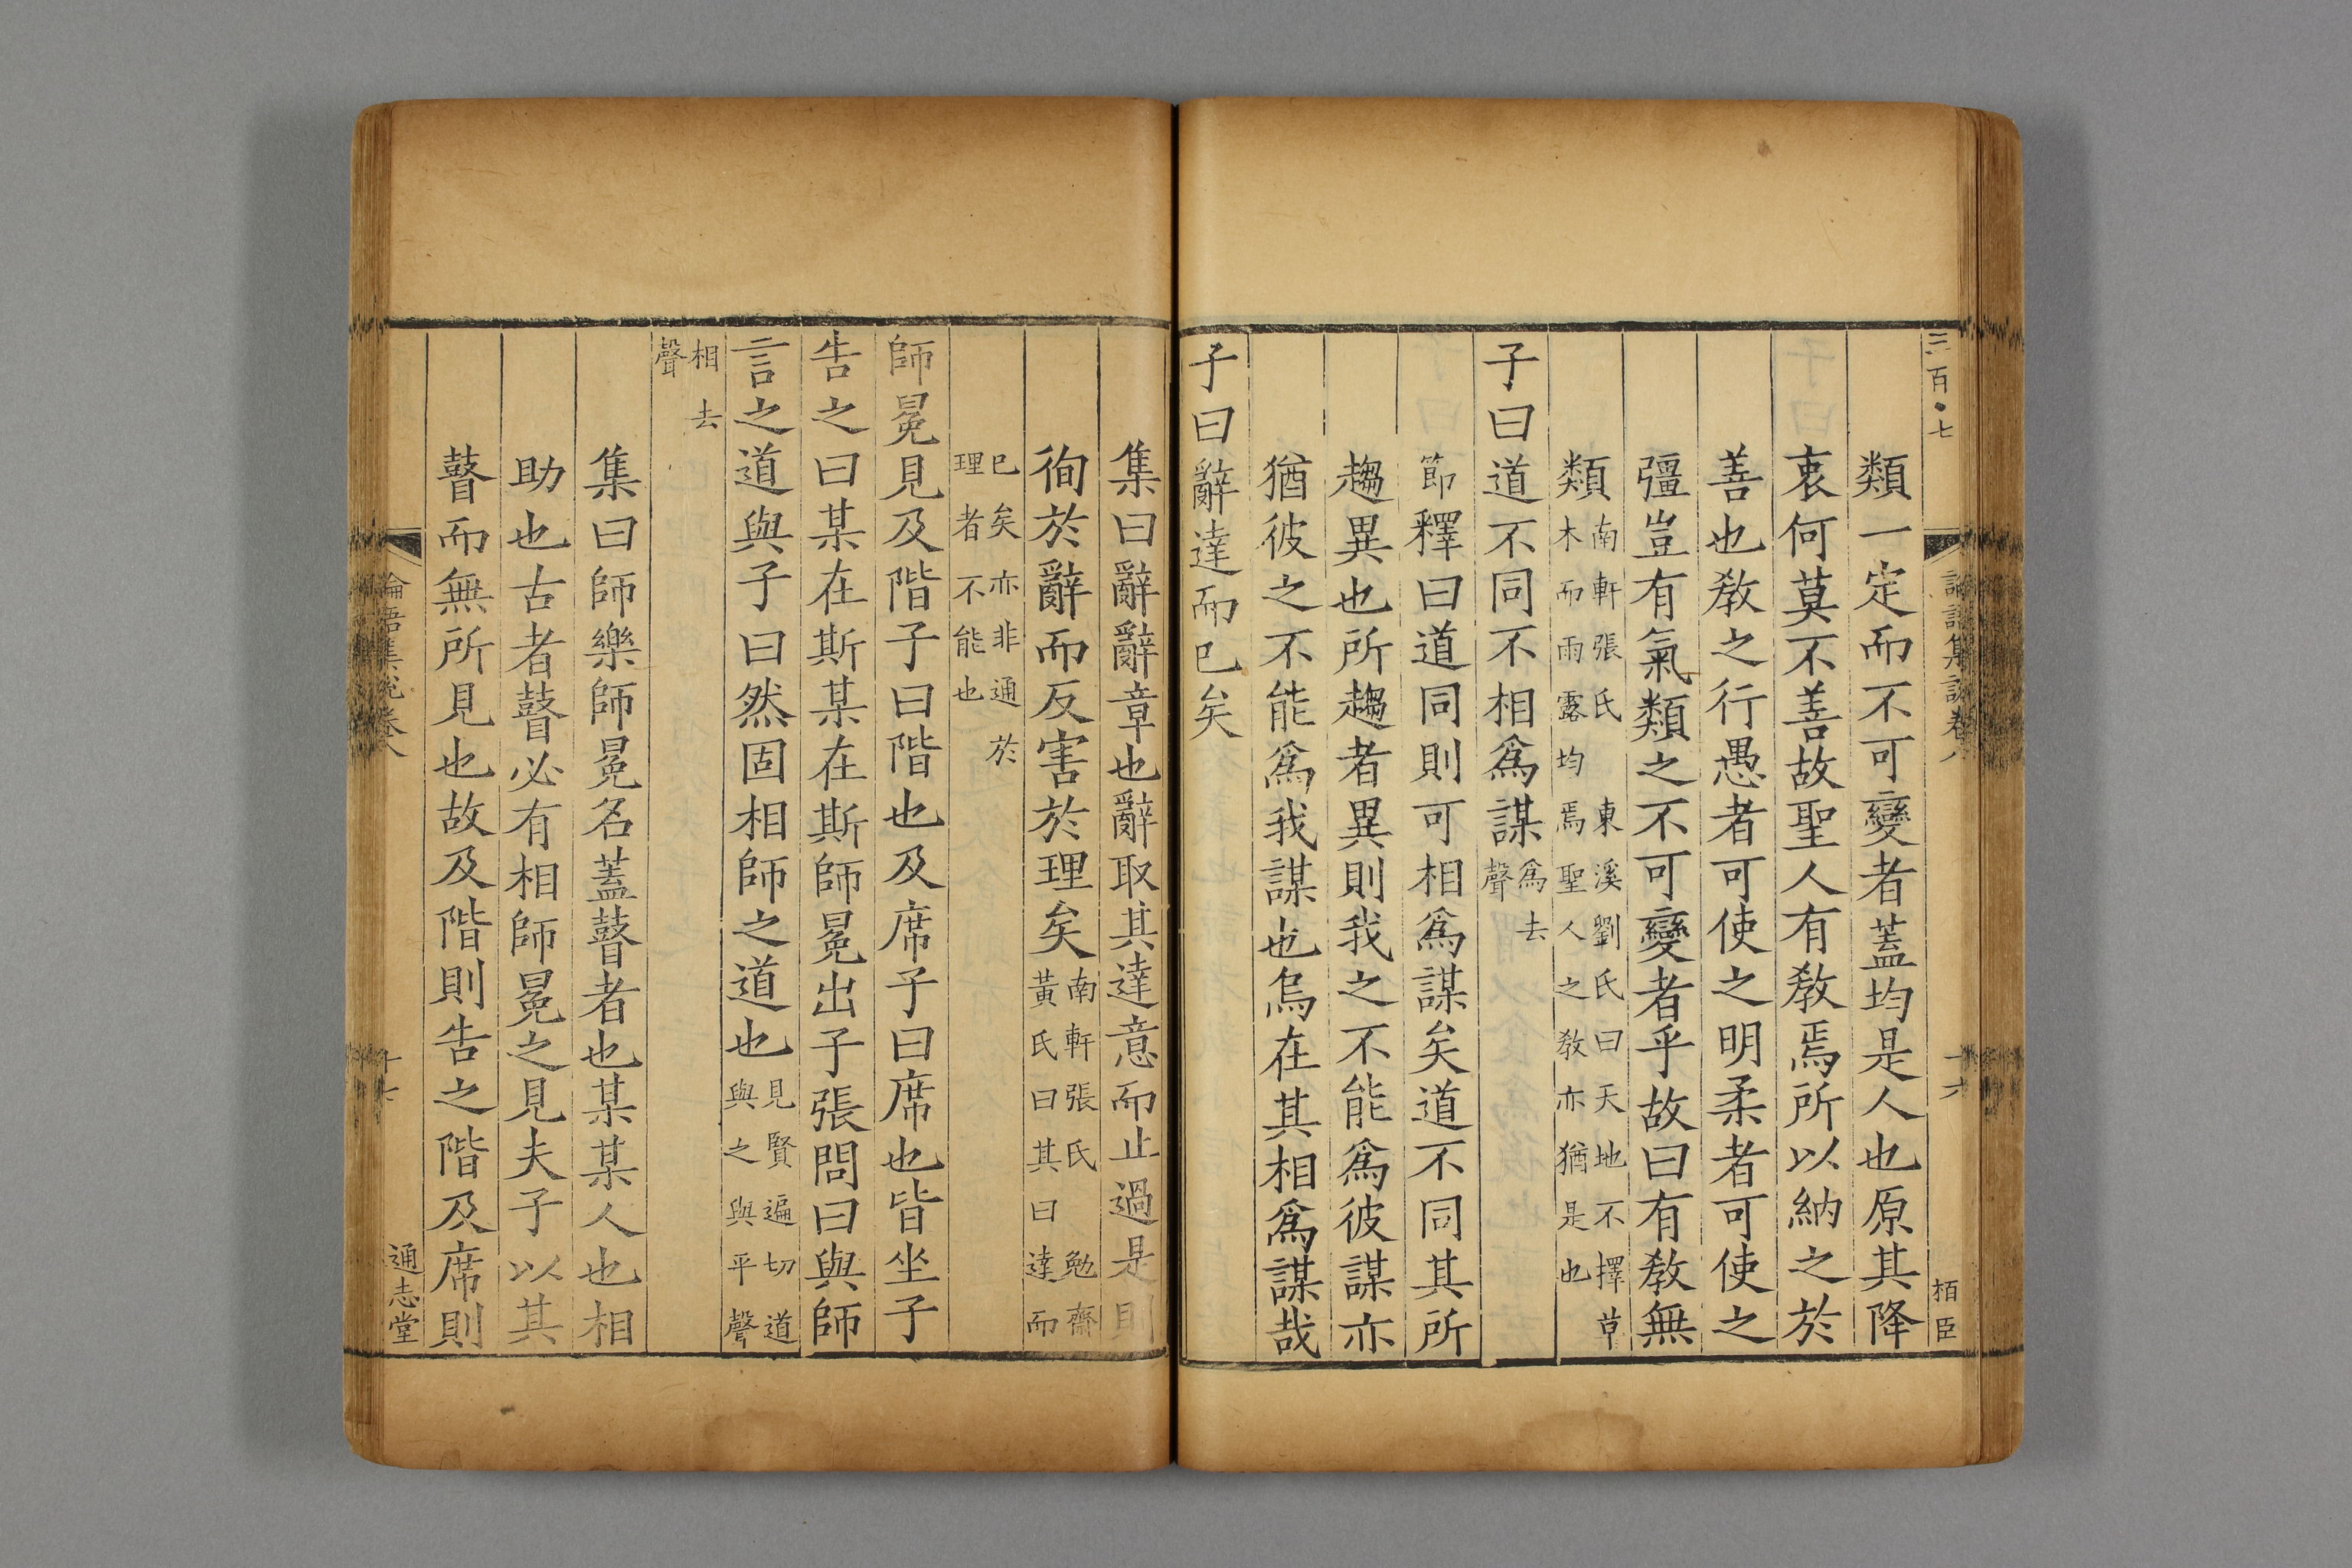 三百·七
栢臣
類一定而不可變者蓋均是人也原其降
衷何莫不善故聖人有敎焉所以納之於
善也敎之行愚者可使之明柔者可使之
彊豈有氣類之不可變者乎故曰有敎無
類南軒張氏 東溪劉氏曰天地不擇草
木而雨露均焉聖人之敎亦猶是也
子曰道不同不相爲謀爲去
聲
節釋曰道同則可相爲謀矣道不同其所
趨異也所趨者異則我之不能爲彼謀亦
猶彼之不能爲我謀也烏在其相爲謀哉
子曰辭達而巳矣
集曰辭辭章也辭取其達意而止過是則
徇於辭而反害於理矣南軒張氏 勉齋
黃氏曰其曰達而
巳矣亦非通於
理者不能也
師冕見及階子曰階也及席子曰席也皆坐子
告之曰某在斯某在斯師冕出子張問曰與師
言之道與子曰然固相師之道也見賢遍切道
與之與平聲
相去
聲
集曰師樂師冕名蓋瞽者也某某人也相
助也古者瞽必有相師冕之見夫子以其
瞽而無所見也故及階則告之階及席則
論語集說卷八
十七
通志堂